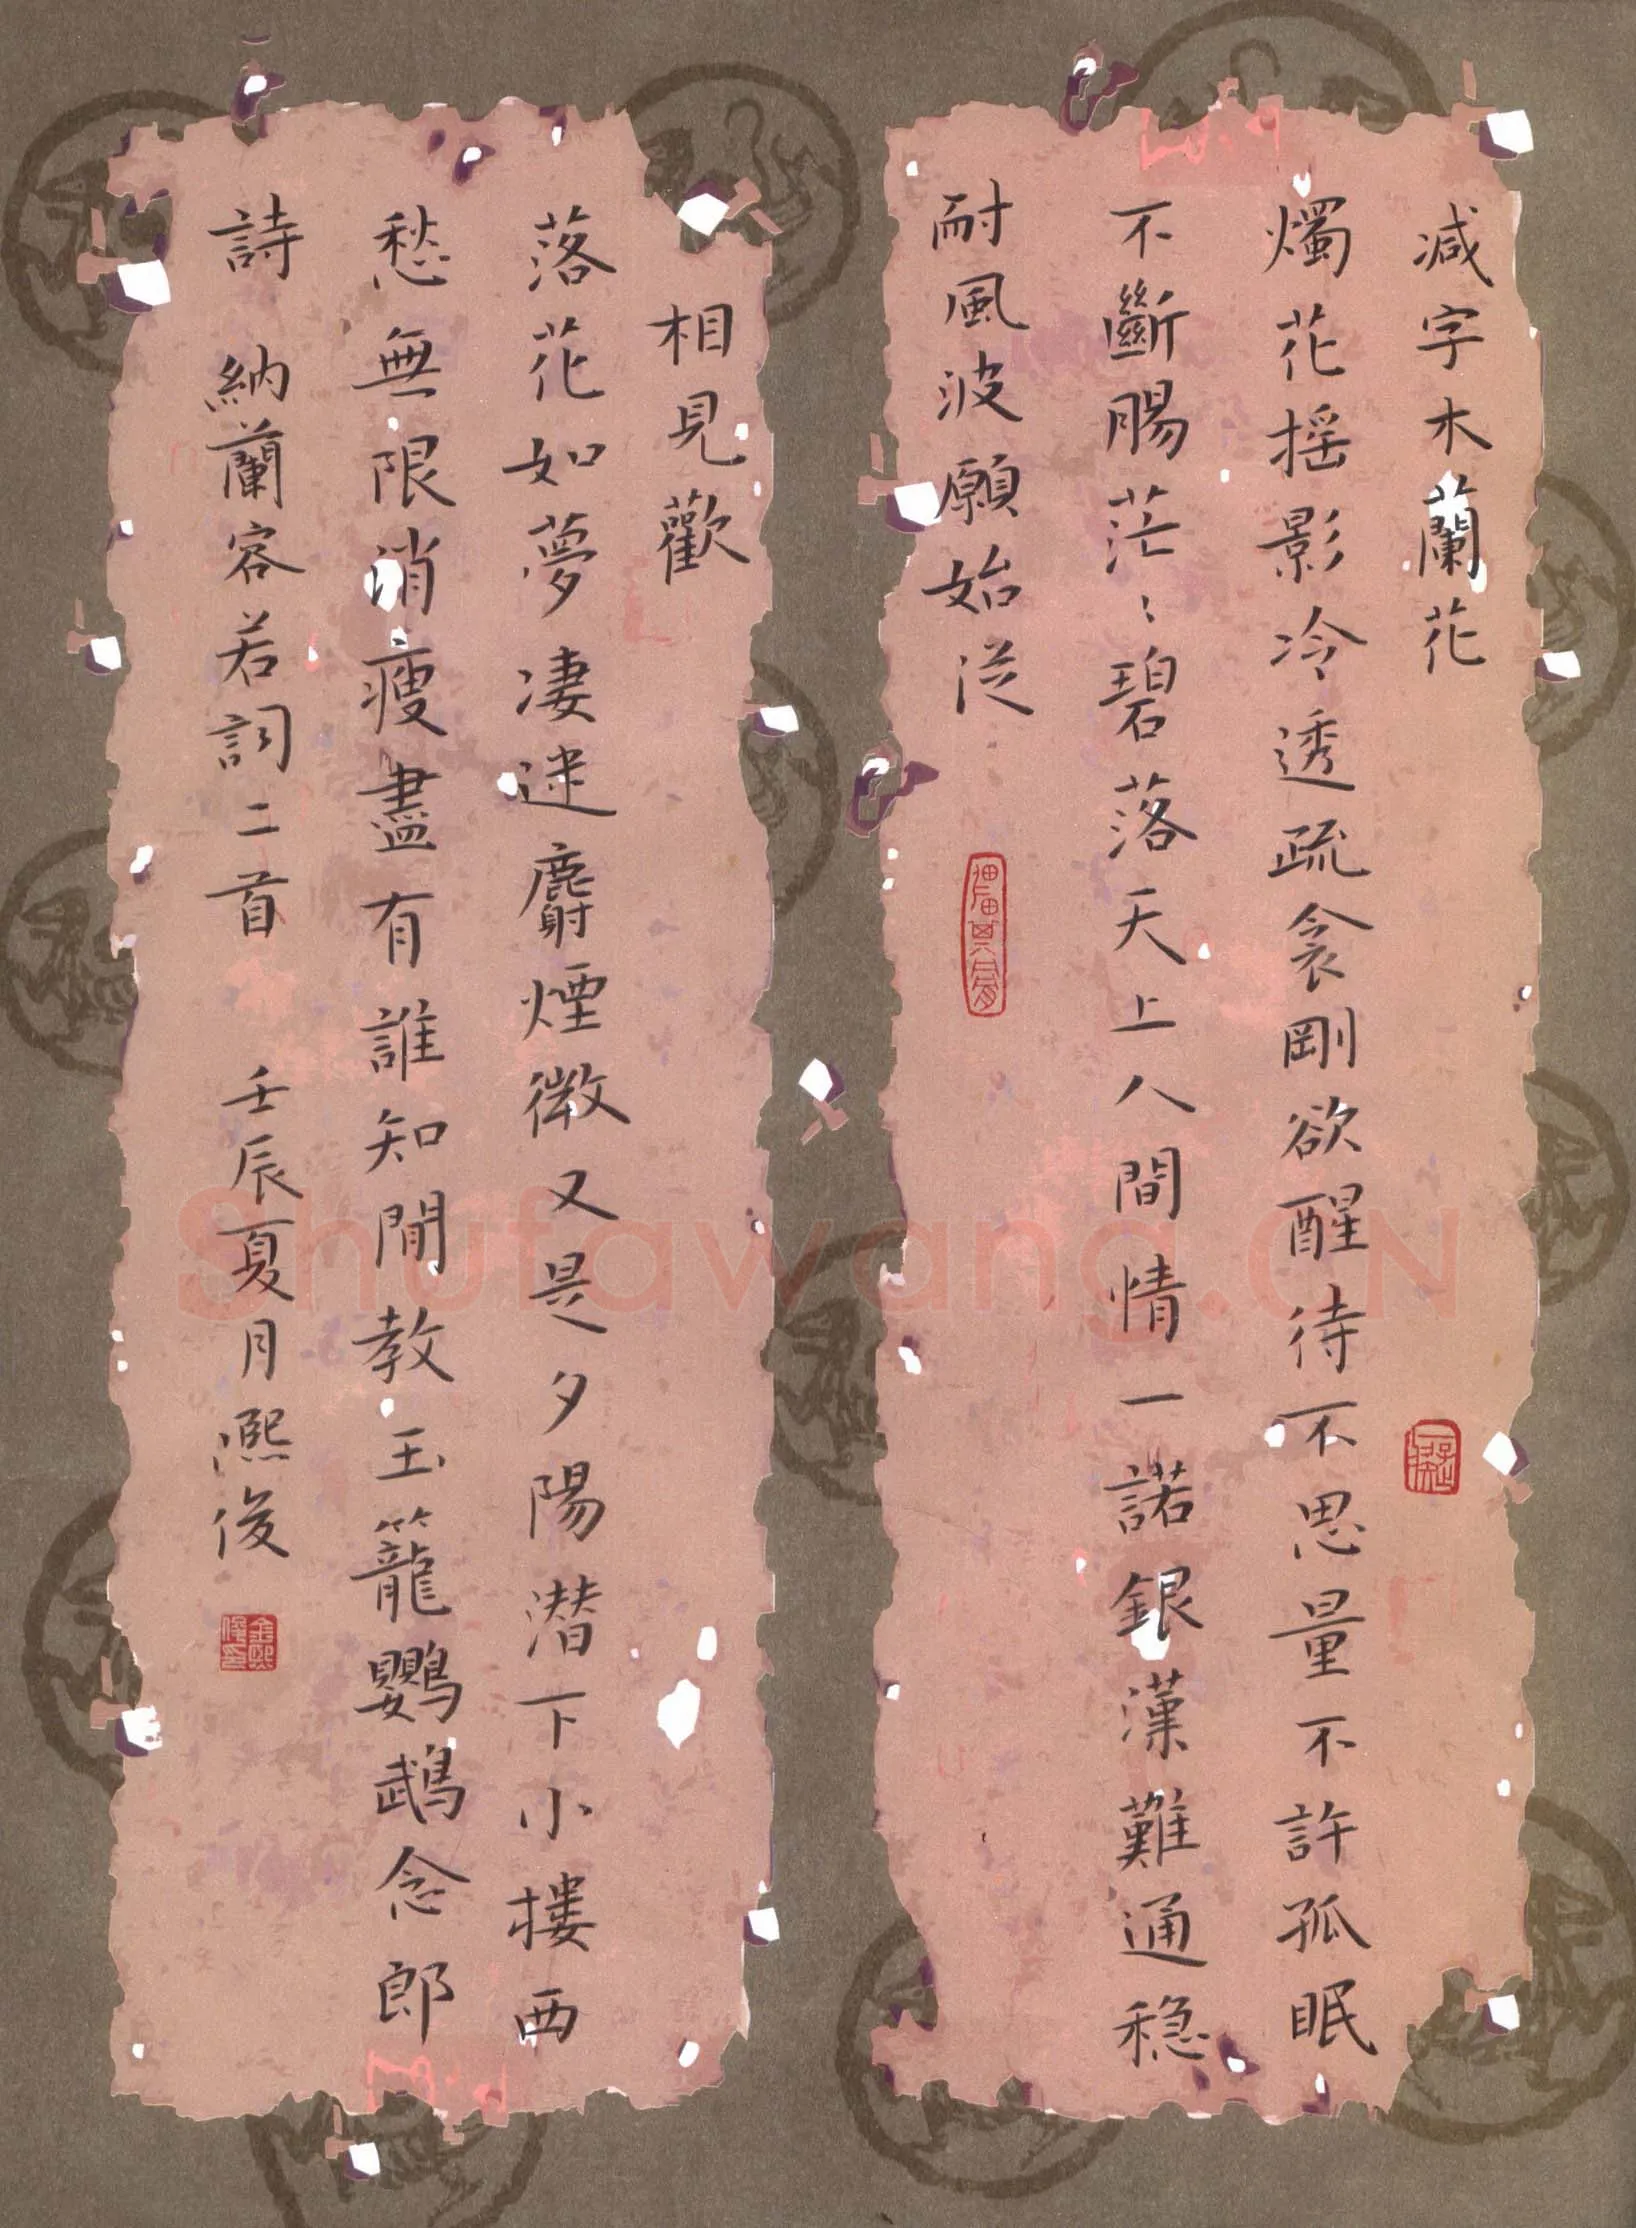 減字木蘭花
燭花摇影冷透疏衾剛欲醒待不思量不許孤眠
不斷腸茫〻碧落天上人間情一諾銀漢難通穏
耐風波願始從
相見歡
落花如夢凄迷麝煙微又是夕陽潜下小樓西
愁無限消瘦盡有誰知閒教玉籠鸚鵡念郎
詩 納蘭容若詞二首 壬辰夏月熙俊
金熙俊印
Shufawang.CN